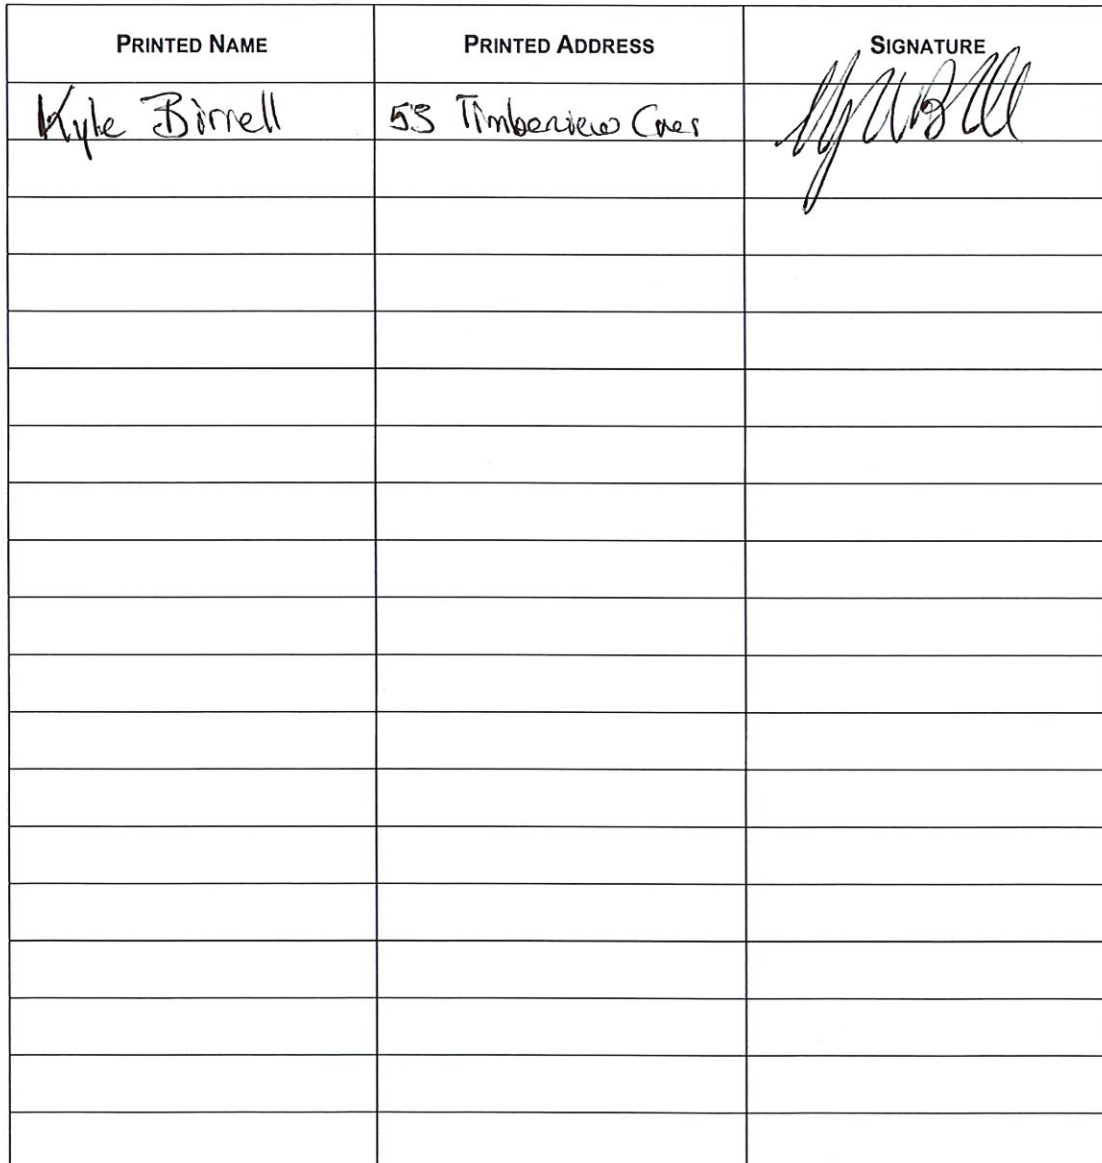 PRINTED NAME PRINTED ADDRESS SIGNATURE
Kyle Birrell 53 Timberview Cres